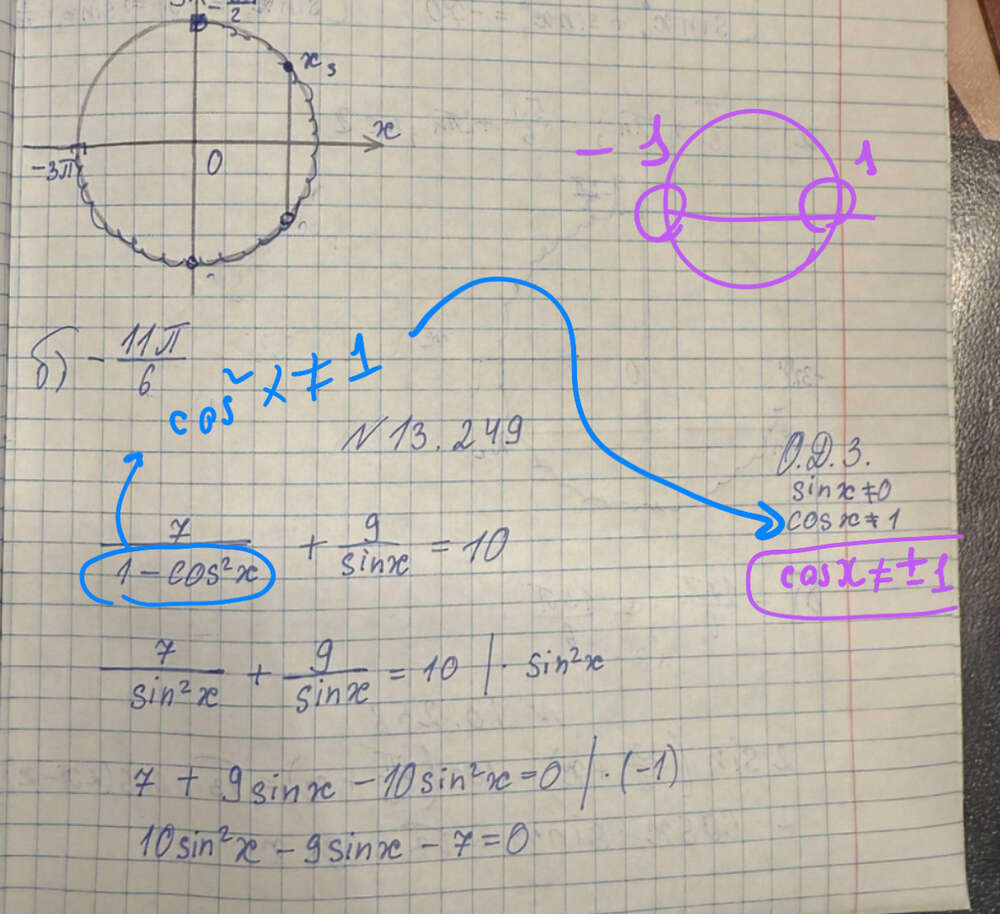 x₃
x
-3π
0
- 1
1
б) - 11π/6
cos²x ≠ 1
N 13.249
О.Д.З.
sinx≠0
cosx≠1
cosx≠±1
7/(1-cos²x) + 9/sinx = 10
7/sin²x + 9/sinx = 10 | · sin²x
7 + 9sinx - 10sin²x = 0 | · (-1)
10sin²x - 9sinx - 7 = 0